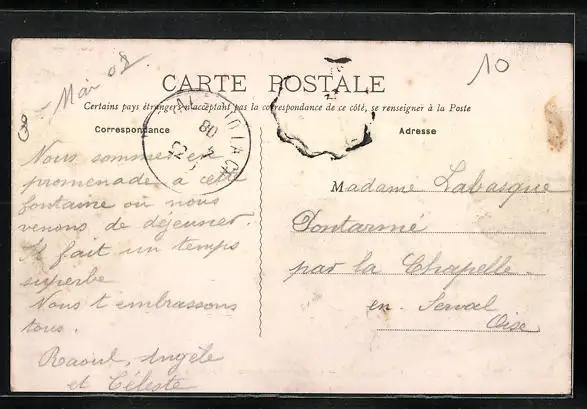 8 Mai 08
10
CARTE POSTALE
Certains pays étrangers n'acceptant pas la correspondance de ce côté, se renseigner à la Poste
Correspondance
Adresse
Nous sommes en
promenade à cette
fontaine où nous
venons de déjeuner.
Il fait un temps
superbe
Nous t'embrassons
tous.
Raoul, Angèle
et Céleste
Madame Labasque
Pontarmé
par la Chapelle
en Serval
Oise